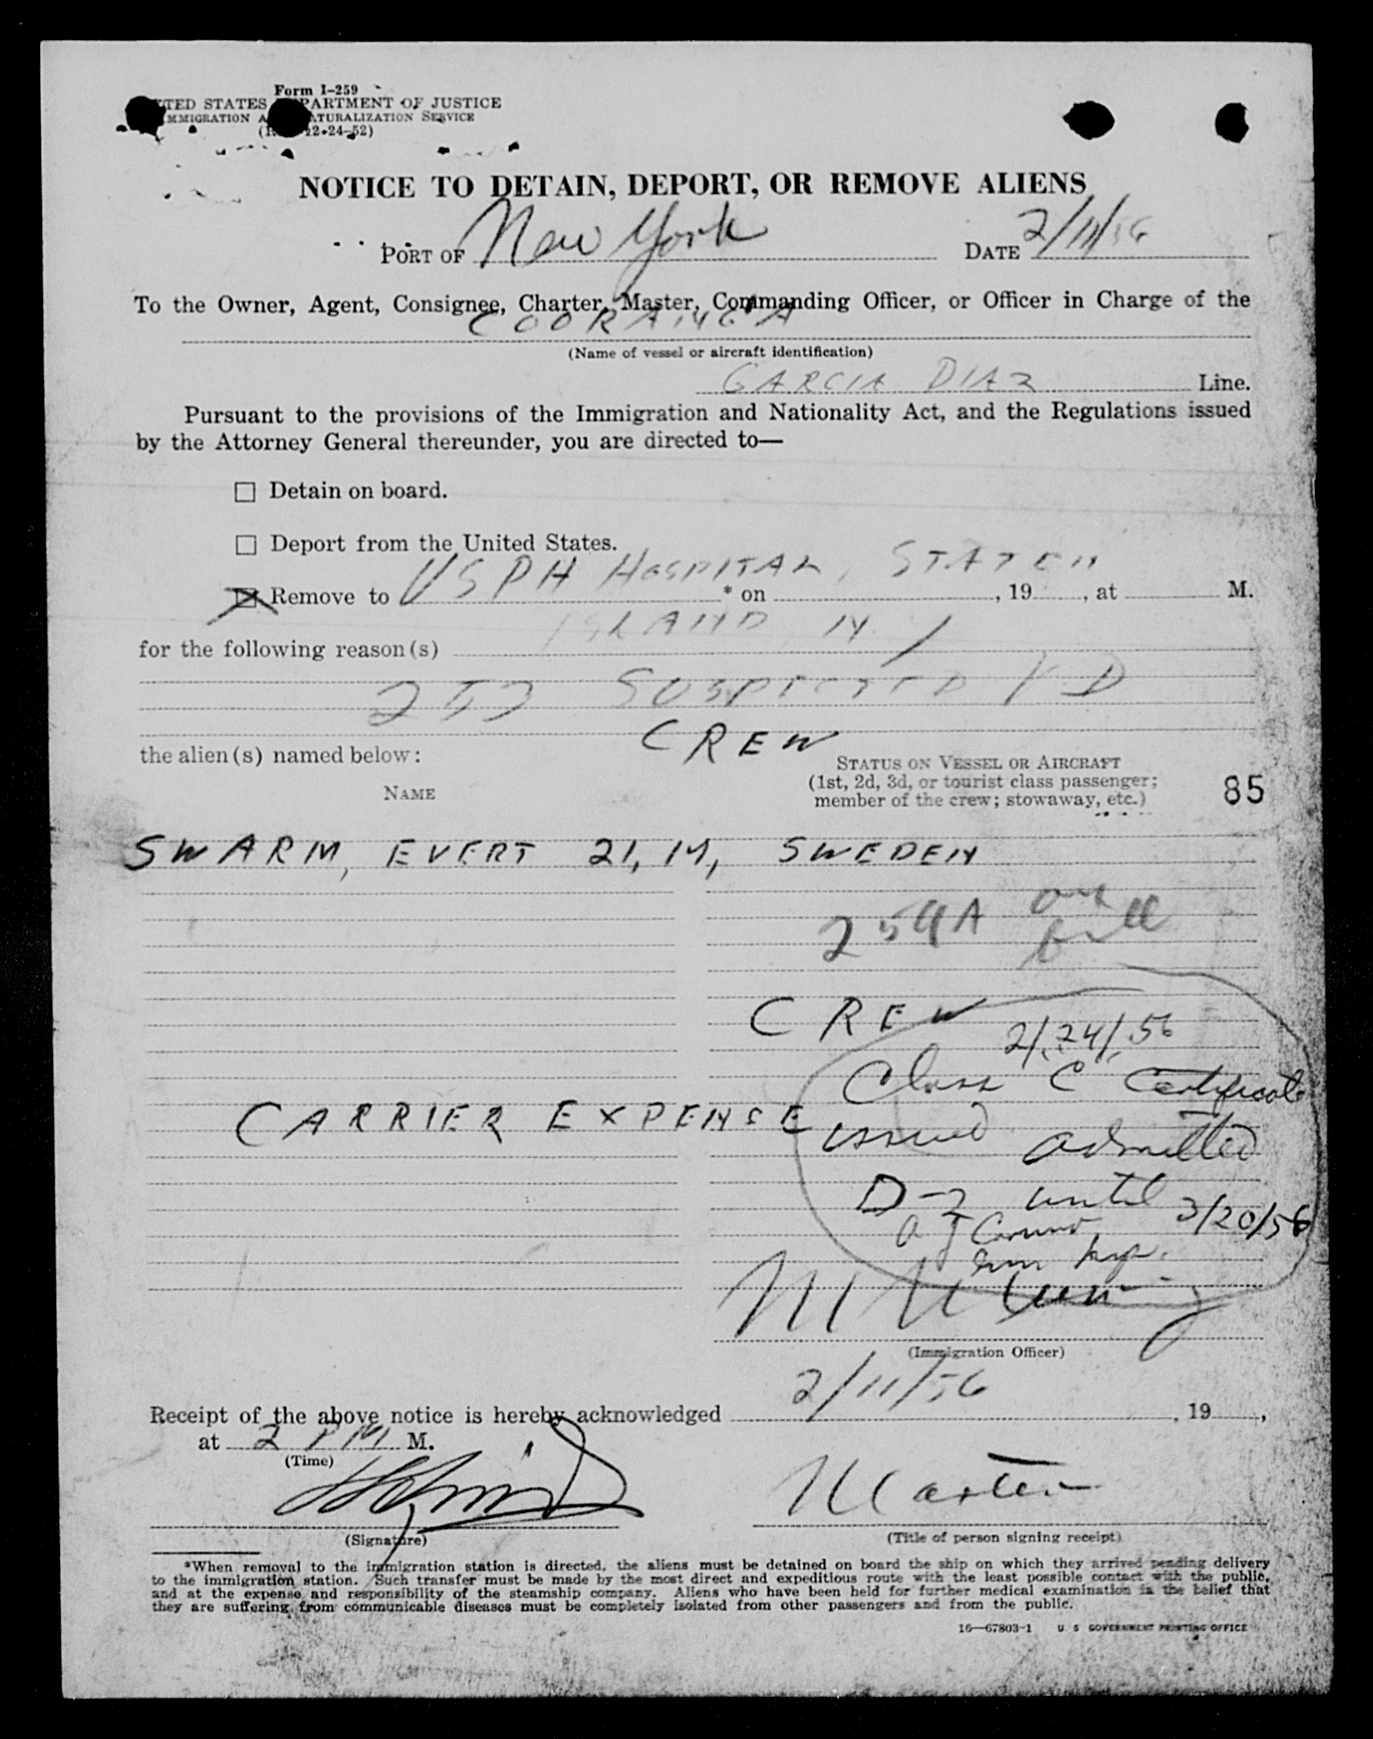 Form I-259
UNITED STATES DEPARTMENT OF JUSTICE
IMMIGRATION AND NATURALIZATION SERVICE
12-24-52)
NOTICE TO DETAIN, DEPORT, OR REMOVE ALIENS
PORT OF New York DATE 2/11/56
To the Owner, Agent, Consignee, Charter, Master, Commanding Officer, or Officer in Charge of the
COORANGA
(Name of vessel or aircraft identification)
GARCIA DIAZ Line.
Pursuant to the provisions of the Immigration and Nationality Act, and the Regulations issued
by the Attorney General thereunder, you are directed to—
☐ Detain on board.
☐ Deport from the United States.
☒ Remove to USPH HOSPITAL, STATEN * on , 19 , at M.
ISLAND NY
for the following reason(s)
252 SUSPECTED VD
CREW
the alien(s) named below:
STATUS ON VESSEL OR AIRCRAFT
(1st, 2d, 3d, or tourist class passenger;
NAME member of the crew; stowaway, etc.) 85
SWARM, EVERT 21, M, SWEDEN
259A on
CREW
2/24/56
Class C Certificate
CARRIER EXPENSE
issued admitted
D-2 until 3/20/56
(Immigration Officer)
2/11/56
Receipt of the above notice is hereby acknowledged , 19 ,
at 2 PM M.
(Time)
Master
(Signature) (Title of person signing receipt)
*When removal to the immigration station is directed, the aliens must be detained on board the ship on which they arrived pending delivery
to the immigration station. Such transfer must be made by the most direct and expeditious route with the least possible contact with the public,
and at the expense and responsibility of the steamship company. Aliens who have been held for further medical examination in the belief that
they are suffering from communicable diseases must be completely isolated from other passengers and from the public.
16—67803-1 U S GOVERNMENT PRINTING OFFICE